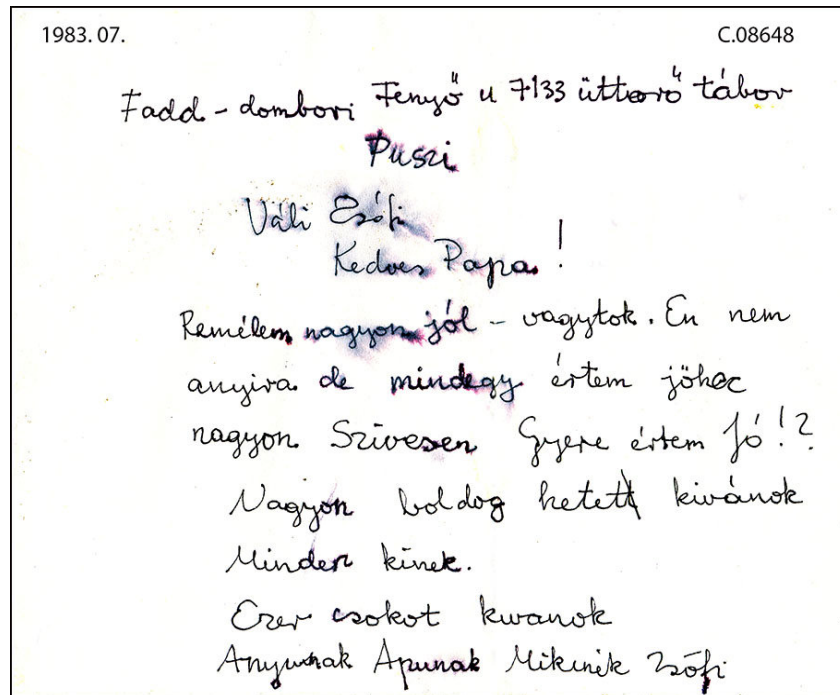 1983. 07. C.08648
Fadd - dombori Fenyő u 7133 úttörő tábor
Puszi
Váli Zsófi
Kedves Papa!
Remélem nagyon jól - vagytok. Én nem
anyira de mindegy értem jöhec
nagyon Szívesen Gyere értem Jó!?
Nagyon boldog hetett kivánok
Minden kinek.
Ezer csokot kivanok
Anyunak Apunak Mikinek Zsófi